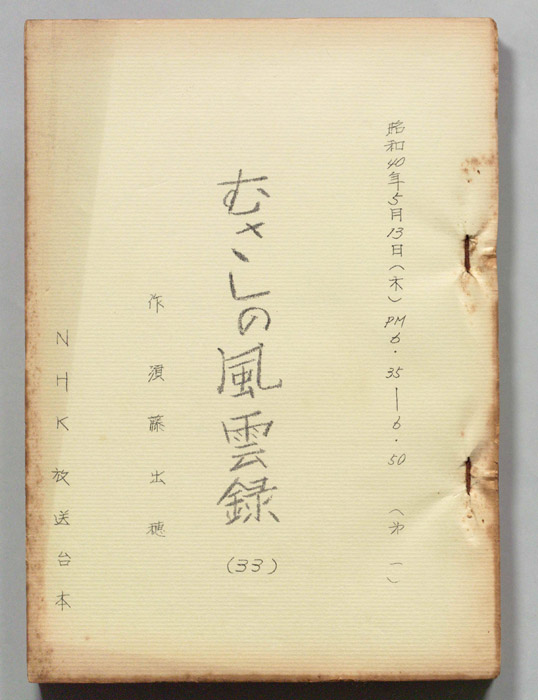 昭和40年5月13日(木) PM6・35―6・50 (才一)
むさしの風雲録
(33)
作 須藤出穂
NHK放送台本